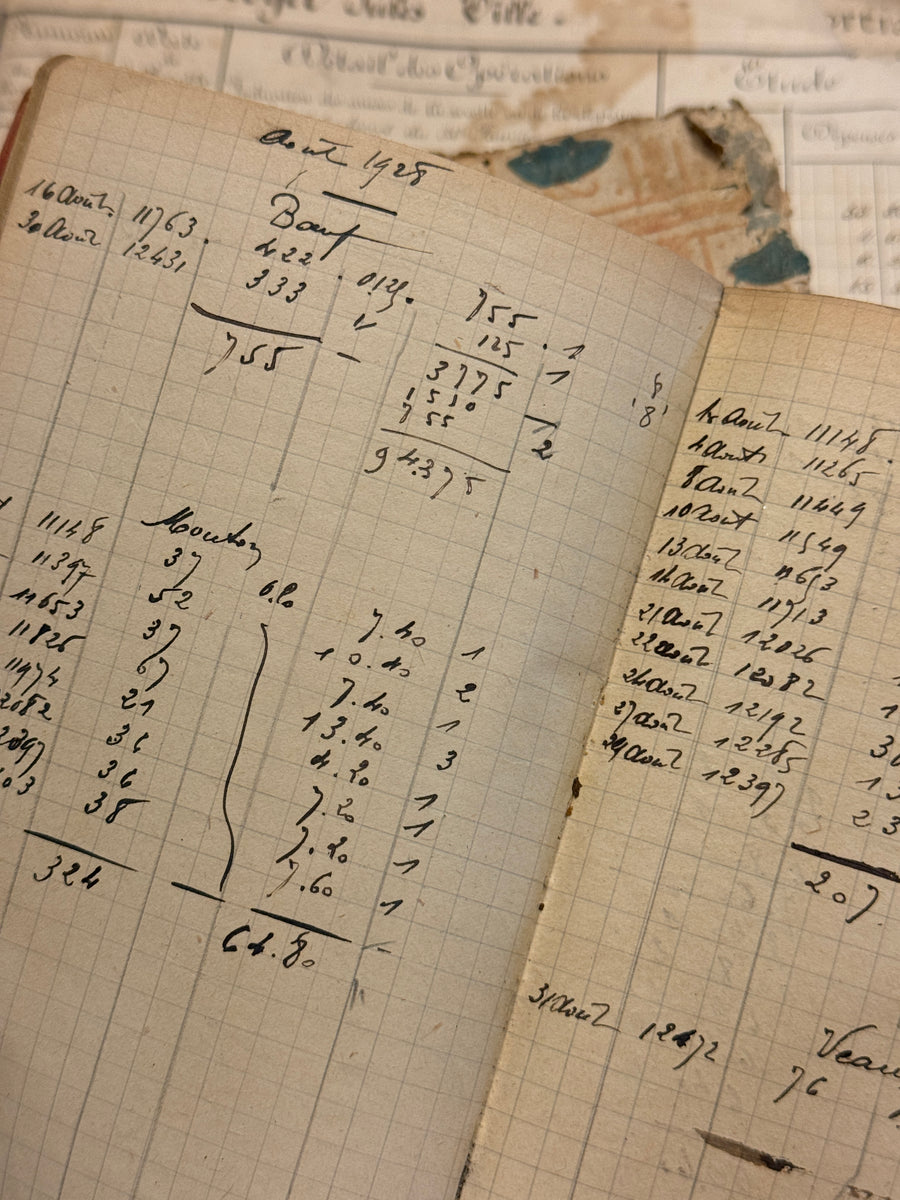 Août 1928
Bœuf
16 Août 11763. 422 0.125.
30 Août 12431 333 "
755
755
125 . 1
3775 1
1510
755 2
94.375
Mouton
11148 37 0.20 7.40 1
11397 52 10.40 2
11653 37 7.40 1
11826 67 13.40 3
11974 21 4.20 1
2082 36 7.20 1
2397 36 7.20 1
03 38 7.60 1
324 64.80
8
'8'
Août 11148.
4 Août 11265
8 Août 11449
10 Août 11549
13 Août 11653
14 Août 11713
21 Août 12026
22 Août 12082
24 Août 12192
27 Août 12285
29 Août 12397
23
207.
31 Août 12472 Veau
76